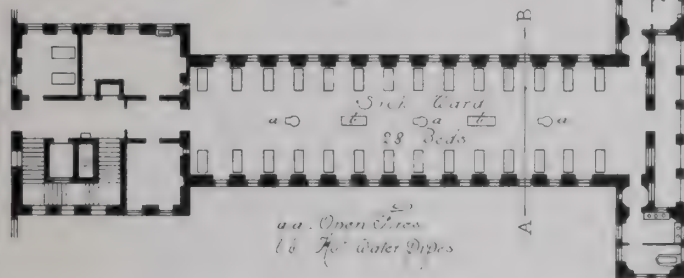 B
Sick Ward
a b a b a
28 Beds
A
a a. Open Fires
b b Hot Water Pipes